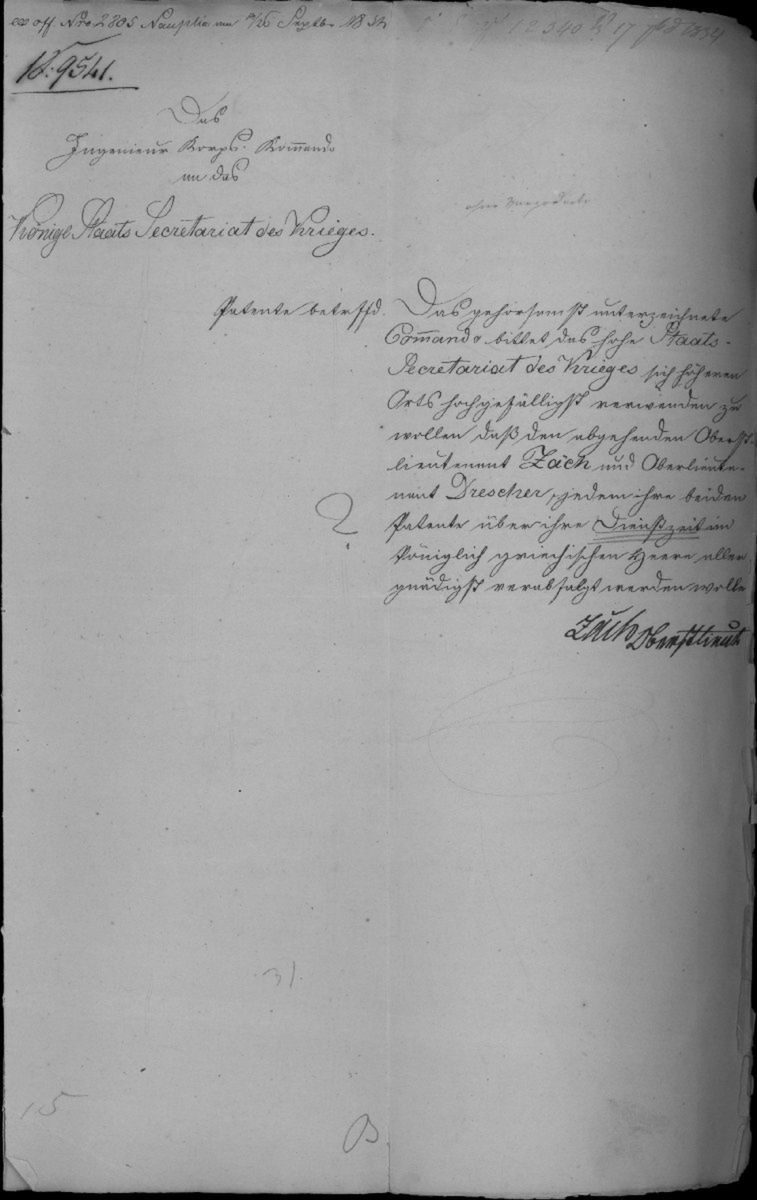 ex off Nro 2305 Nauplia am Septbr. 1834
12340 17 1834
No. 9541.
Das
Ingenieur Korps. Kommando
an das
Königl. Staats Secretariat des Krieges.
ohne
Patente betrffd.
Das gehorsamst unterzeichnete
Commando bittet das hohe Staats-
Secretariat des Krieges sich höheren
Orts hochgefälligst verwenden zu
wollen daß den abgehenden Oberst-
lieutenant Zäch und Oberlieute-
nant Drescher, jedem ihre beiden
Patente über ihre Dienstzeit im
Königlich griechischen Heere aller
gnädigst verabfolgt werden wolle
Zäch Oberstlieut
?
31.
15
B